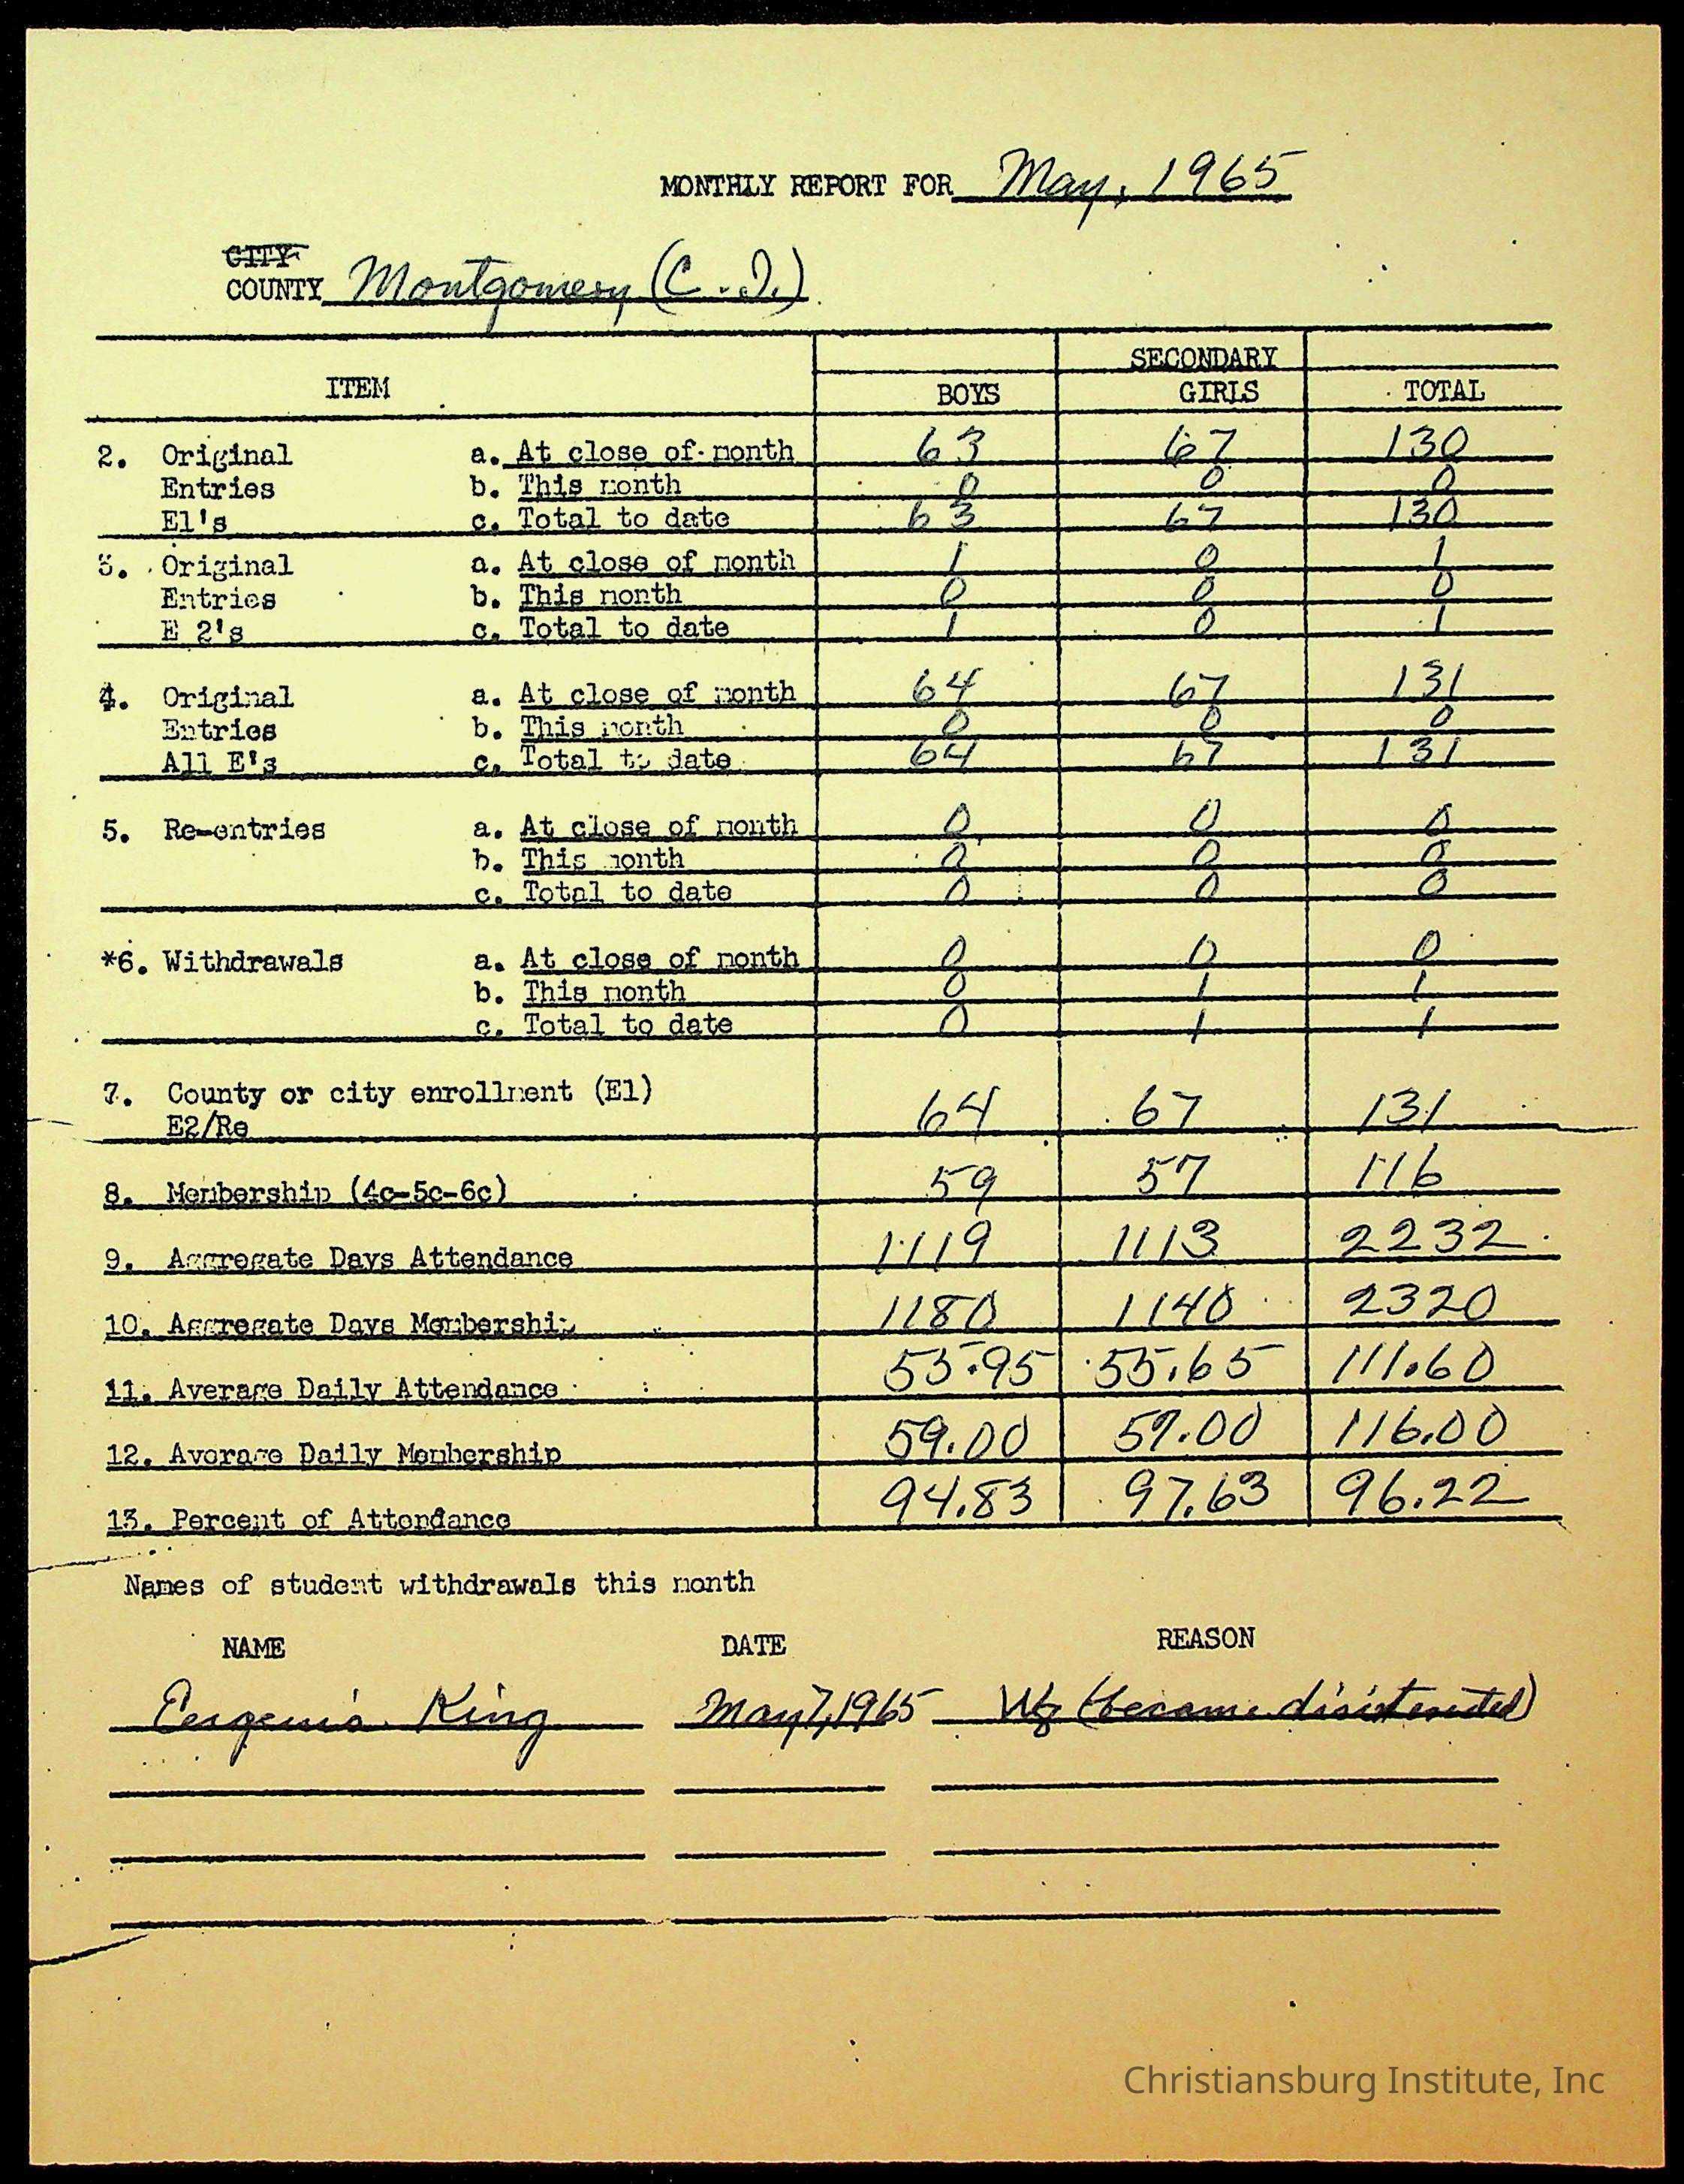 MONTHLY REPORT FOR May, 1965
CITY
COUNTY Montgomery (C. I.)
SECONDARY
ITEM BOYS GIRLS TOTAL
2. Original a. At close of month 63 67 130
Entries b. This month 0 0 0
E1's c. Total to date 63 67 130
3. Original a. At close of month 1 0 1
Entries b. This month 0 0 0
E 2's c. Total to date 1 0 1
4. Original a. At close of month 64 67 131
Entries b. This month 0 0 0
All E's c. Total to date 64 67 131
5. Re-entries a. At close of month 0 0 0
b. This month 0 0 0
c. Total to date 0 0 0
*6. Withdrawals a. At close of month 0 0 0
b. This month 0 1 1
c. Total to date 0 1 1
7. County or city enrollment (E1)
E2/Re 64 67 131
8. Membership (4c-5c-6c) 59 57 116
9. Aggregate Days Attendance 1119 1113 2232
10. Aggregate Days Membership 1180 1140 2320
11. Average Daily Attendance 55.95 55.65 111.60
12. Average Daily Membership 59.00 57.00 116.00
13. Percent of Attendance 94.83 97.63 96.22
Names of student withdrawals this month
NAME DATE REASON
Eugenia King May 7, 1965 (became disinterested)
Christiansburg Institute, Inc